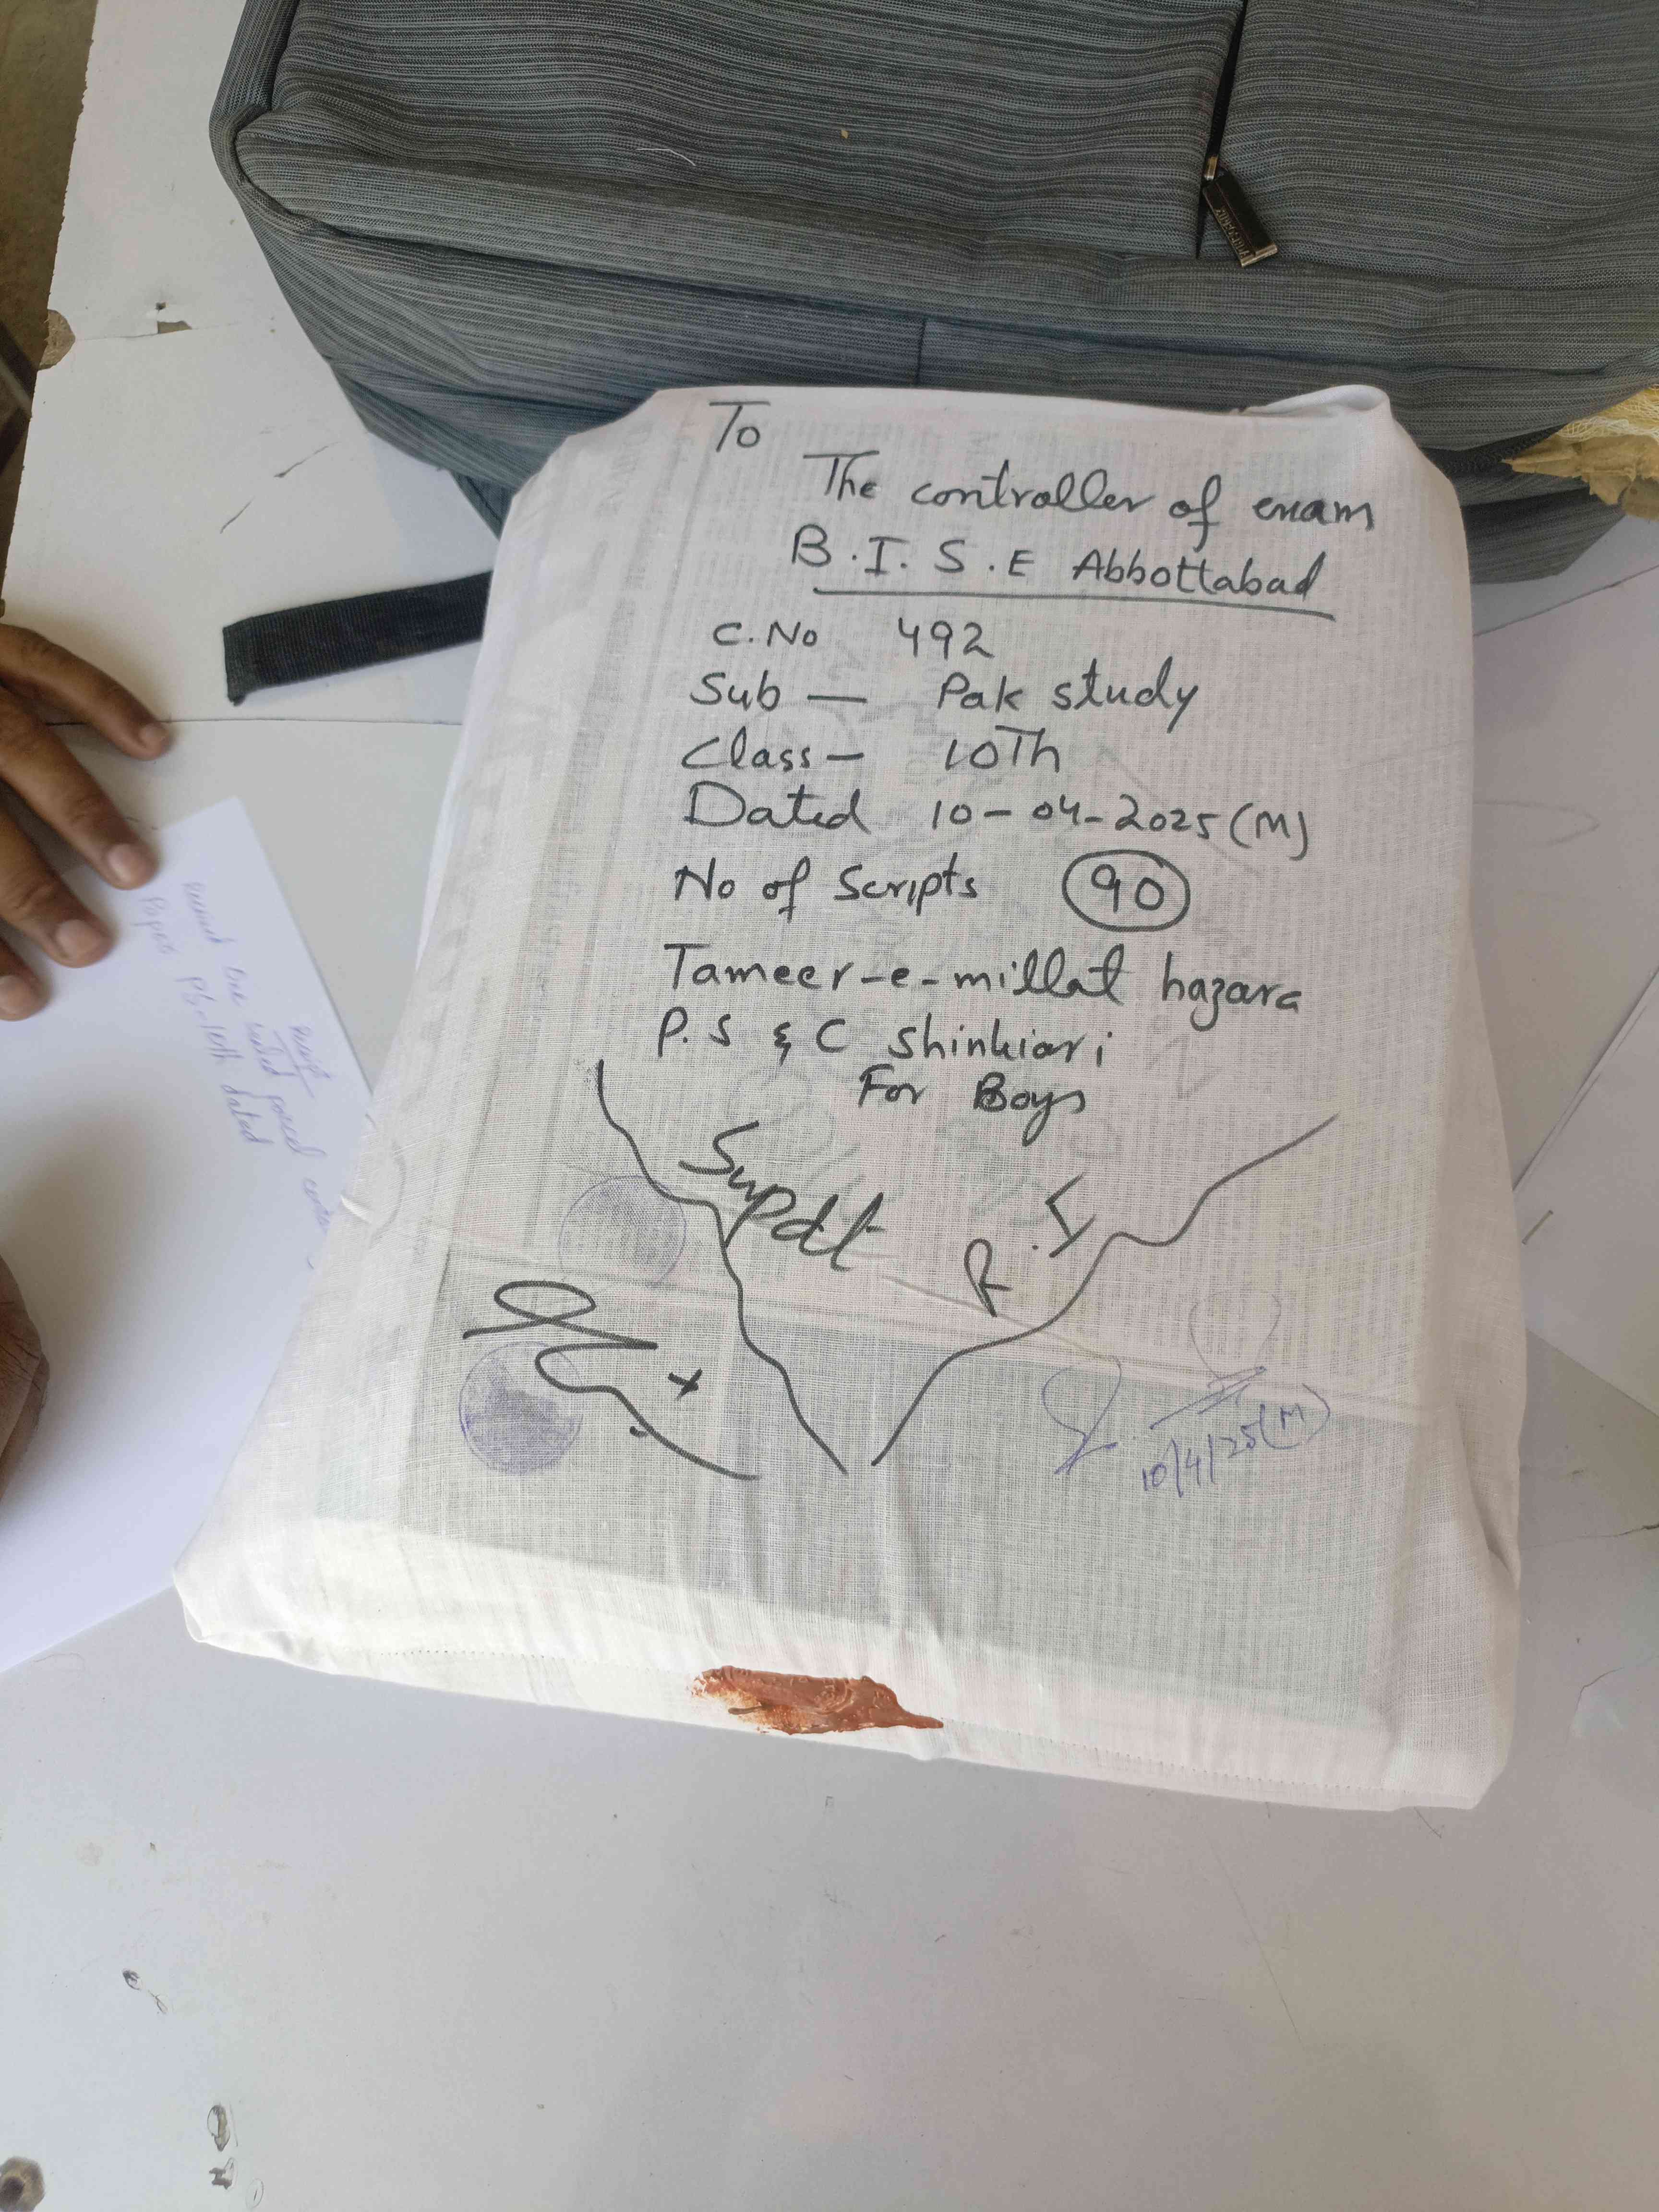 To
The controller of exam
B.I.S.E Abbottabad
C.No 492
Sub — Pak study
Class — 10Th
Dated 10-04-2025 (M)
No of Scripts 90
Tameer-e-millat hazara
P.S & C Shinkiari
For Boys
Supdt
R.I
10/4/25(M)
Receipt
Received one sealed parcel
Papers PS-10th dated